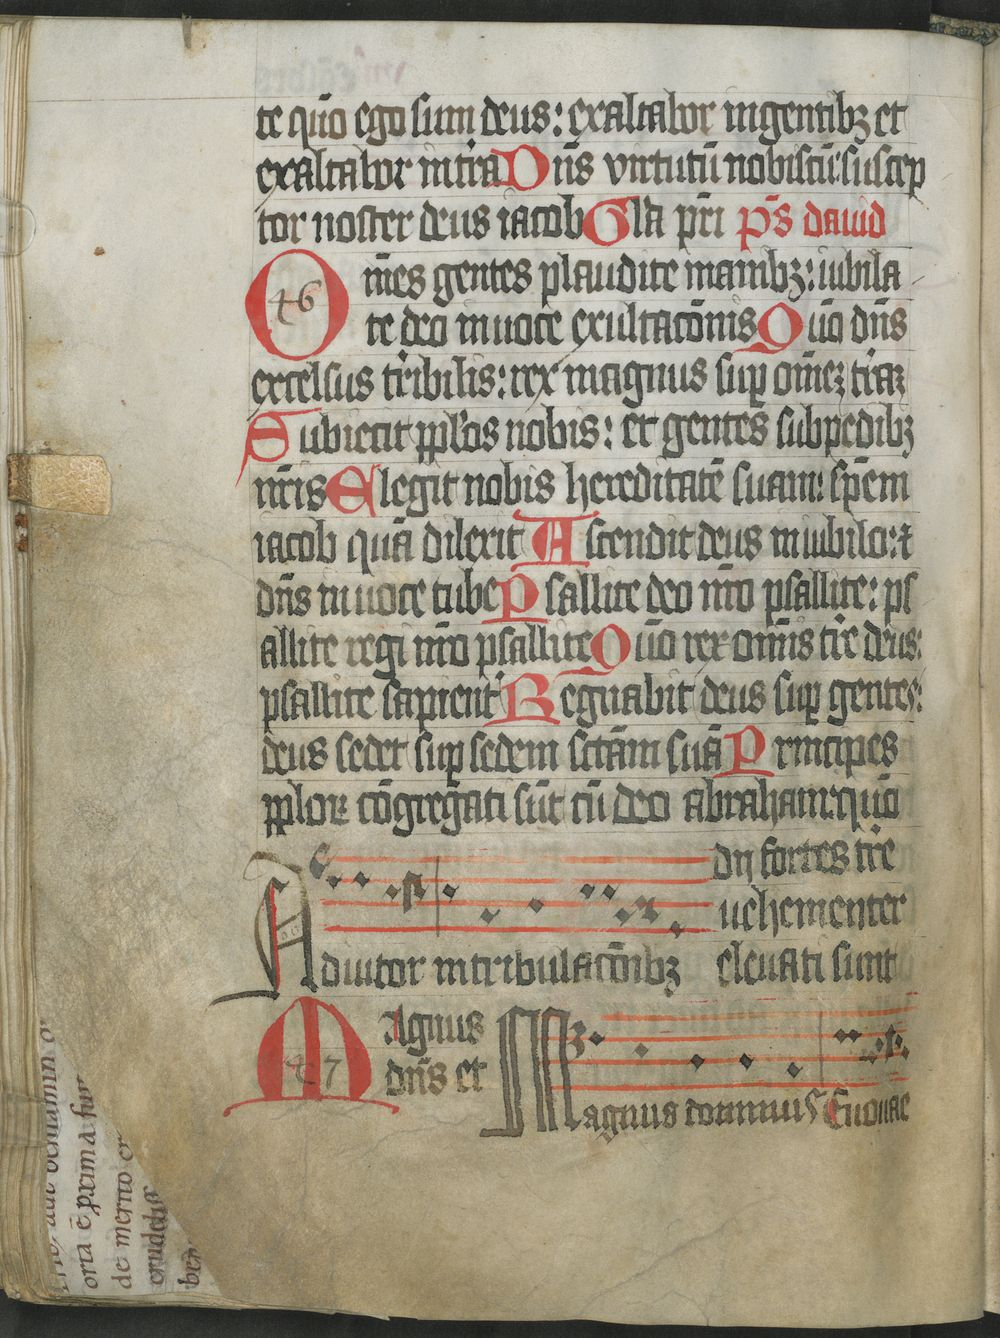 te quō ego sum deus: exaltabor in gentibꝫ et
exaltabor in tr̄a Dn̄s virtutū nobiscū: suscep
tor noster deus iacob Gl̄a pr̄i p̄s dauid
Om̄es gentes plaudite manibꝫ: iubila
46
te deo in uoce exultac̄onis Quō dn̄s
excelsus tr̄ibilis: rex magnus suꝑ om̄eꝫ tr̄aꝫ
Subiecit ppl̄os nobis: et gentes sub pedibꝫ
nr̄is Elegit nobis hereditatē suam: sp̄em
iacob quā dilexit Ascendit deus in iubilo: ⁊
dn̄s in uoce tube Psallite deo nr̄o psallite: ps
allite regi nr̄o psallite Quō rex om̄is tr̄e deus:
psallite sapient' Regnabit deus suꝑ gentes:
deus sedet suꝑ sedem sc̄tām suā Principes
ppl̄oꝝ cōgregati sūt cū deo abraham: quō
dij fortes tr̄e
uehementer
Adiutor in tribulac̄onibꝫ eleuati sunt
Magnus
47 dn̄s et
Magnus dominus Euouae
oria ē prima
de